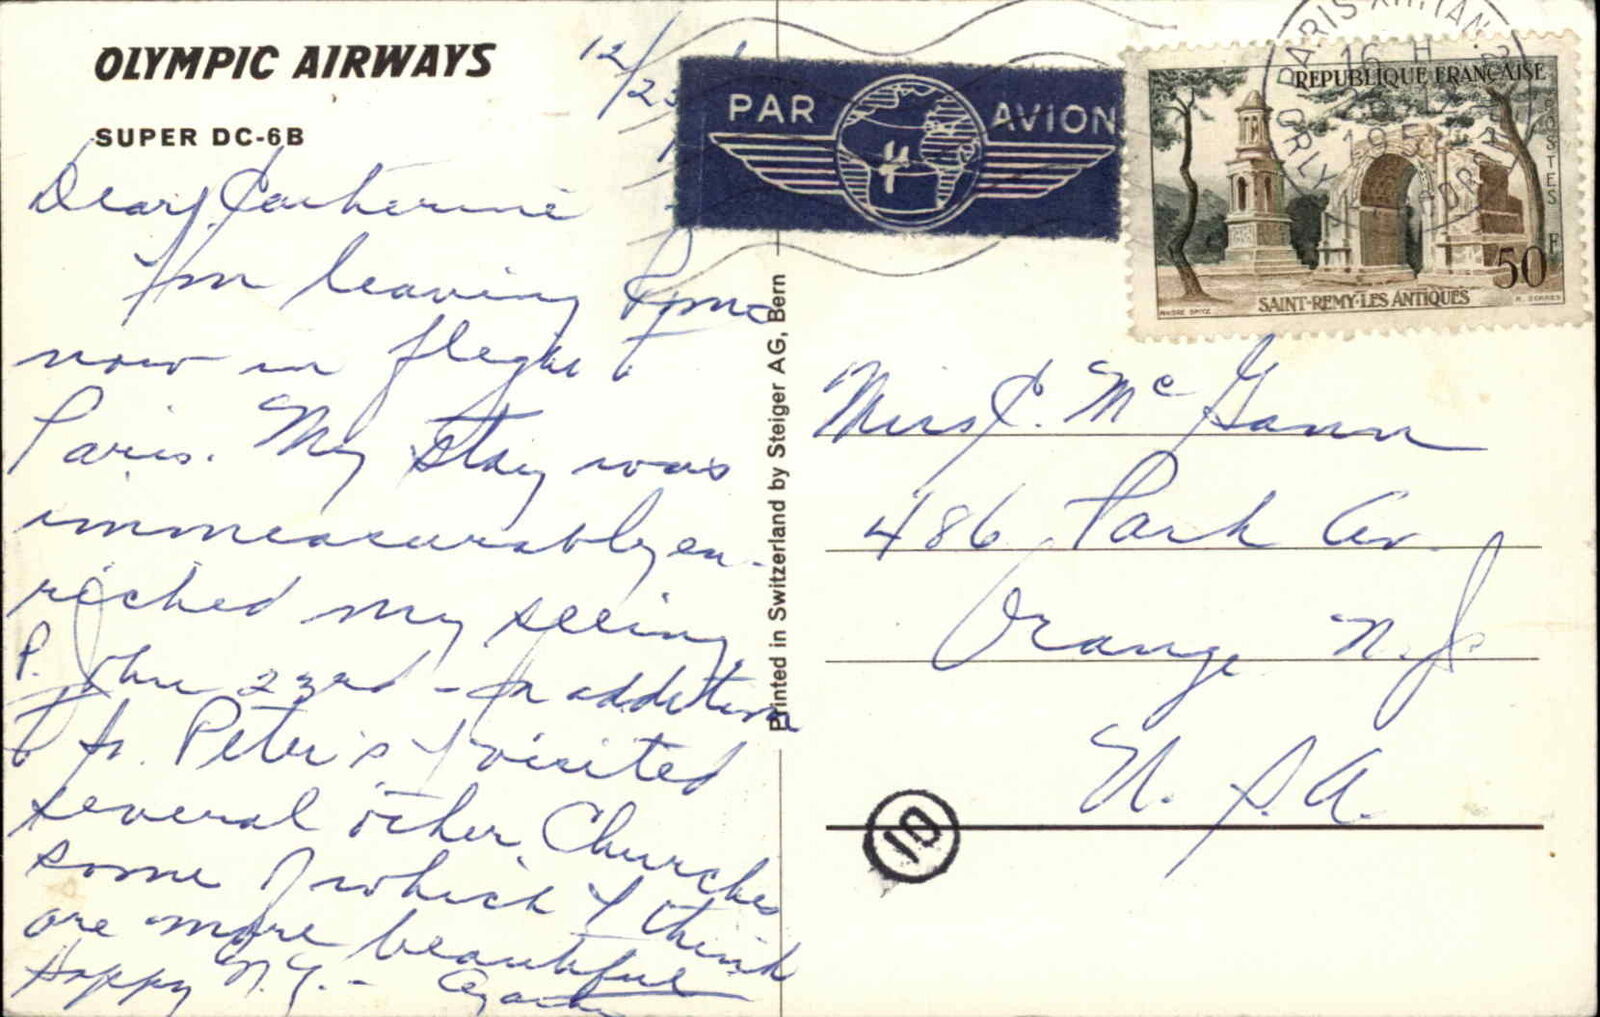 OLYMPIC AIRWAYS
SUPER DC-6B
12/23
Dear Catherine
I'm leaving Rome
now in flight to
Paris. My stay was
immeasurably en-
riched my seeing
P. John 23rd - In addition
to St. Peter's I visited
several other Churches
some of which I think
are more beautiful
Happy N.Y. -
Printed in Switzerland by Steiger AG, Bern
PAR AVION
REPUBLIQUE FRANÇAISE
POSTES
50 F
SAINT-REMY-LES ANTIQUES
PARIS
16 H
ORLY
Miss C. McGann
486 Park Av.
Orange N.J.
U.S.A.
10